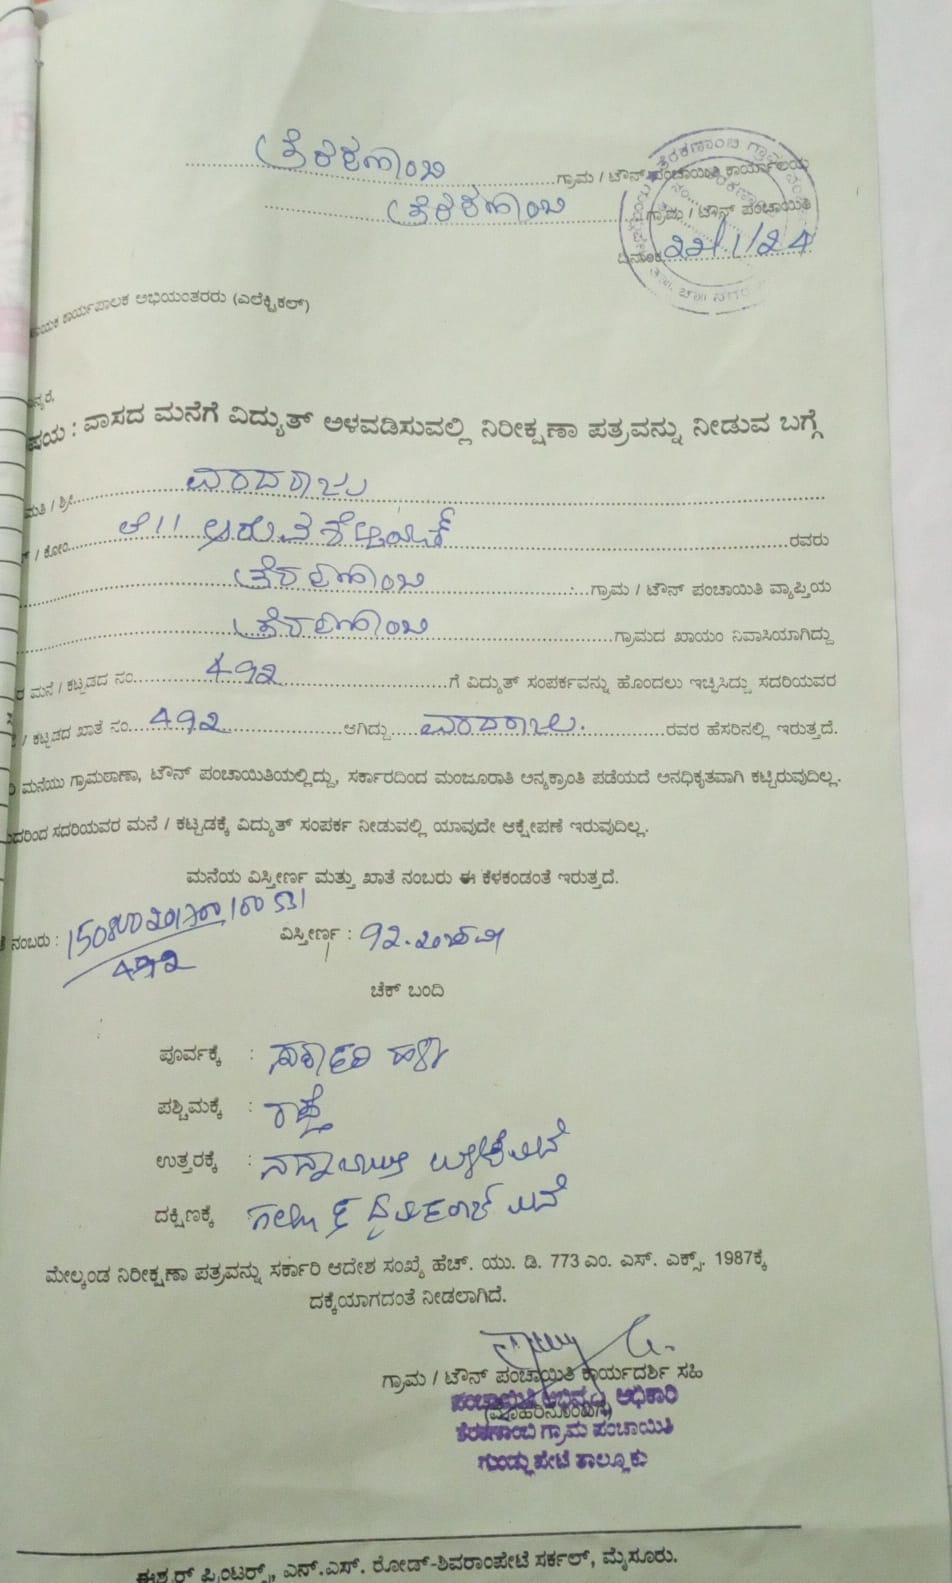 ತೆರಕಣಾಂಬಿ ಗ್ರಾಮ / ಟೌನ್ ಪಂಚಾಯಿತಿ ಕಾರ್ಯಾಲಯ
ತೆರಕಣಾಂಬಿ ಗ್ರಾಮ / ಟೌನ್ ಪಂಚಾಯಿತಿ
ದಿನಾಂಕ 22/1/24
ಕಾರ್ಯಪಾಲಕ ಅಭಿಯಂತರರು (ಎಲೆಕ್ಟ್ರಿಕಲ್)
ನ್ಯರೆ,
ಷಯ : ವಾಸದ ಮನೆಗೆ ವಿದ್ಯುತ್ ಅಳವಡಿಸುವಲ್ಲಿ ನಿರೀಕ್ಷಣಾ ಪತ್ರವನ್ನು ನೀಡುವ ಬಗ್ಗೆ
ಮತಿ / ಶ್ರೀ ವರದರಾಜು
/ ಕೋಂ ರವರು
ತೆರಕಣಾಂಬಿ ಗ್ರಾಮ / ಟೌನ್ ಪಂಚಾಯಿತಿ ವ್ಯಾಪ್ತಿಯ
ತೆರಕಣಾಂಬಿ ಗ್ರಾಮದ ಖಾಯಂ ನಿವಾಸಿಯಾಗಿದ್ದು
ರ ಮನೆ / ಕಟ್ಟಡದ ನಂ. 492 ಗೆ ವಿದ್ಯುತ್ ಸಂಪರ್ಕವನ್ನು ಹೊಂದಲು ಇಚ್ಛಿಸಿದ್ದು ಸದರಿಯವರ
/ ಕಟ್ಟಡದ ಖಾತೆ ನಂ. 492 ಆಗಿದ್ದು ವರದರಾಜು. ರವರ ಹೆಸರಿನಲ್ಲಿ ಇರುತ್ತದೆ.
ಮನೆಯು ಗ್ರಾಮಠಾಣಾ, ಟೌನ್ ಪಂಚಾಯಿತಿಯಲ್ಲಿದ್ದು, ಸರ್ಕಾರದಿಂದ ಮಂಜೂರಾತಿ ಅನ್ಯಕ್ರಾಂತಿ ಪಡೆಯದೆ ಅನಧಿಕೃತವಾಗಿ ಕಟ್ಟಿರುವುದಿಲ್ಲ.
ದರಿಂದ ಸದರಿಯವರ ಮನೆ / ಕಟ್ಟಡಕ್ಕೆ ವಿದ್ಯುತ್ ಸಂಪರ್ಕ ನೀಡುವಲ್ಲಿ ಯಾವುದೇ ಆಕ್ಷೇಪಣೆ ಇರುವುದಿಲ್ಲ.
ಮನೆಯ ವಿಸ್ತೀರ್ಣ ಮತ್ತು ಖಾತೆ ನಂಬರು ಈ ಕೆಳಕಂಡಂತೆ ಇರುತ್ತದೆ.
ನಂಬರು : 492 ವಿಸ್ತೀರ್ಣ :
ಚೆಕ್ ಬಂದಿ
ಪೂರ್ವಕ್ಕೆ : ಸರ್ಕಾರಿ ಹಳ್ಳ
ಪಶ್ಚಿಮಕ್ಕೆ : ರಸ್ತೆ
ಉತ್ತರಕ್ಕೆ :
ದಕ್ಷಿಣಕ್ಕೆ ಮನೆ
ಮೇಲ್ಕಂಡ ನಿರೀಕ್ಷಣಾ ಪತ್ರವನ್ನು ಸರ್ಕಾರಿ ಆದೇಶ ಸಂಖ್ಯೆ ಹೆಚ್. ಯು. ಡಿ. 773 ಎಂ. ಎಸ್. ಎಕ್ಸ್. 1987ಕ್ಕೆ
ದಕ್ಕೆಯಾಗದಂತೆ ನೀಡಲಾಗಿದೆ.
ಗ್ರಾಮ / ಟೌನ್ ಪಂಚಾಯಿತಿ ಕಾರ್ಯದರ್ಶಿ ಸಹಿ
ಪಂಚಾಯಿತಿ ಅಭಿವೃದ್ಧಿ ಅಧಿಕಾರಿ
(ಮೊಹರಿನೊಂದಿಗೆ)
ತೆರಕಣಾಂಬಿ ಗ್ರಾಮ ಪಂಚಾಯಿತಿ
ಗುಂಡ್ಲುಪೇಟೆ ತಾಲ್ಲೂಕು
ಈಶ್ವರ್ ಪ್ರಿಂಟರ್ಸ್, ಎನ್.ಎಸ್. ರೋಡ್-ಶಿವರಾಂಪೇಟೆ ಸರ್ಕಲ್, ಮೈಸೂರು.